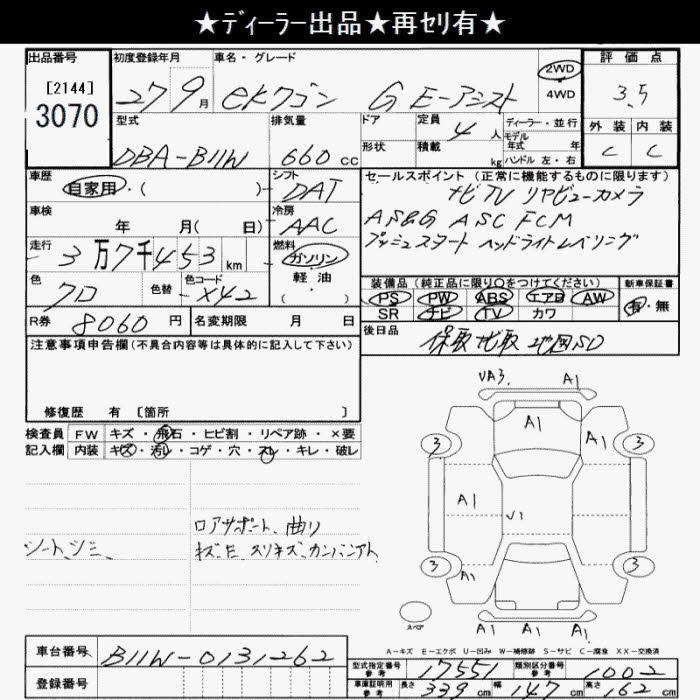 ★ディーラー出品★再セリ有★
出品番号 初度登録年月 車名・グレード 評価点
[2144] 3070 27 9月 eKワゴン G E-アシスト 2WD 4WD 3.5
型式 排気量 ドア 定員 4人 ディーラー・並行 外装 内装
DBA-B11W 660cc 形状 積載 kg モデル年式 年 ハンドル 左・右 C C
車歴 自家用・( ) シフト DAT セールスポイント (正常に機能するものに限ります)
ナビ TV リヤビューカメラ
車検 年 月( 日) 冷房 AAC AS&G ASC FCM
走行 3万7千453km 燃料 ガソリン 軽油 ( ) プッシュスタート ヘッドライトレベリング
色 クロ 色替 色コード X42 装備品 (純正品に限り○をつけてください) 新車保証書
PS PW ABS エアB AW 有・無
SR ナビ TV カワ
R券 8060円 名変期限 月 日 後日品 保取 ナビ取 地図SD
注意事項申告欄(不具合内容等は具体的に記入して下さい)
修復歴 有 [箇所 ]
VA3. A1
A1 A1
検査員 FW キズ・飛石・ヒビ割・リペア跡・×要
記入欄 内装 キズ・汚レ・コゲ・穴・スレ・キレ・破レ
3 3
A1
V1
ロアサポート、曲り
シートシミ、 キズ・サビ スリキズ、
3 3
A1
スペア
A1 A1 A1
A-キズ E-エクボ U-凹み W-補修跡 S-サビ C-腐食 XX-交換済
車台番号 B11W-0131262
型式指定番号 参考 17551 類別区分番号 参考 1002
登録番号 車庫証明用 参考 長さ 339cm 幅 147cm 高さ 162cm